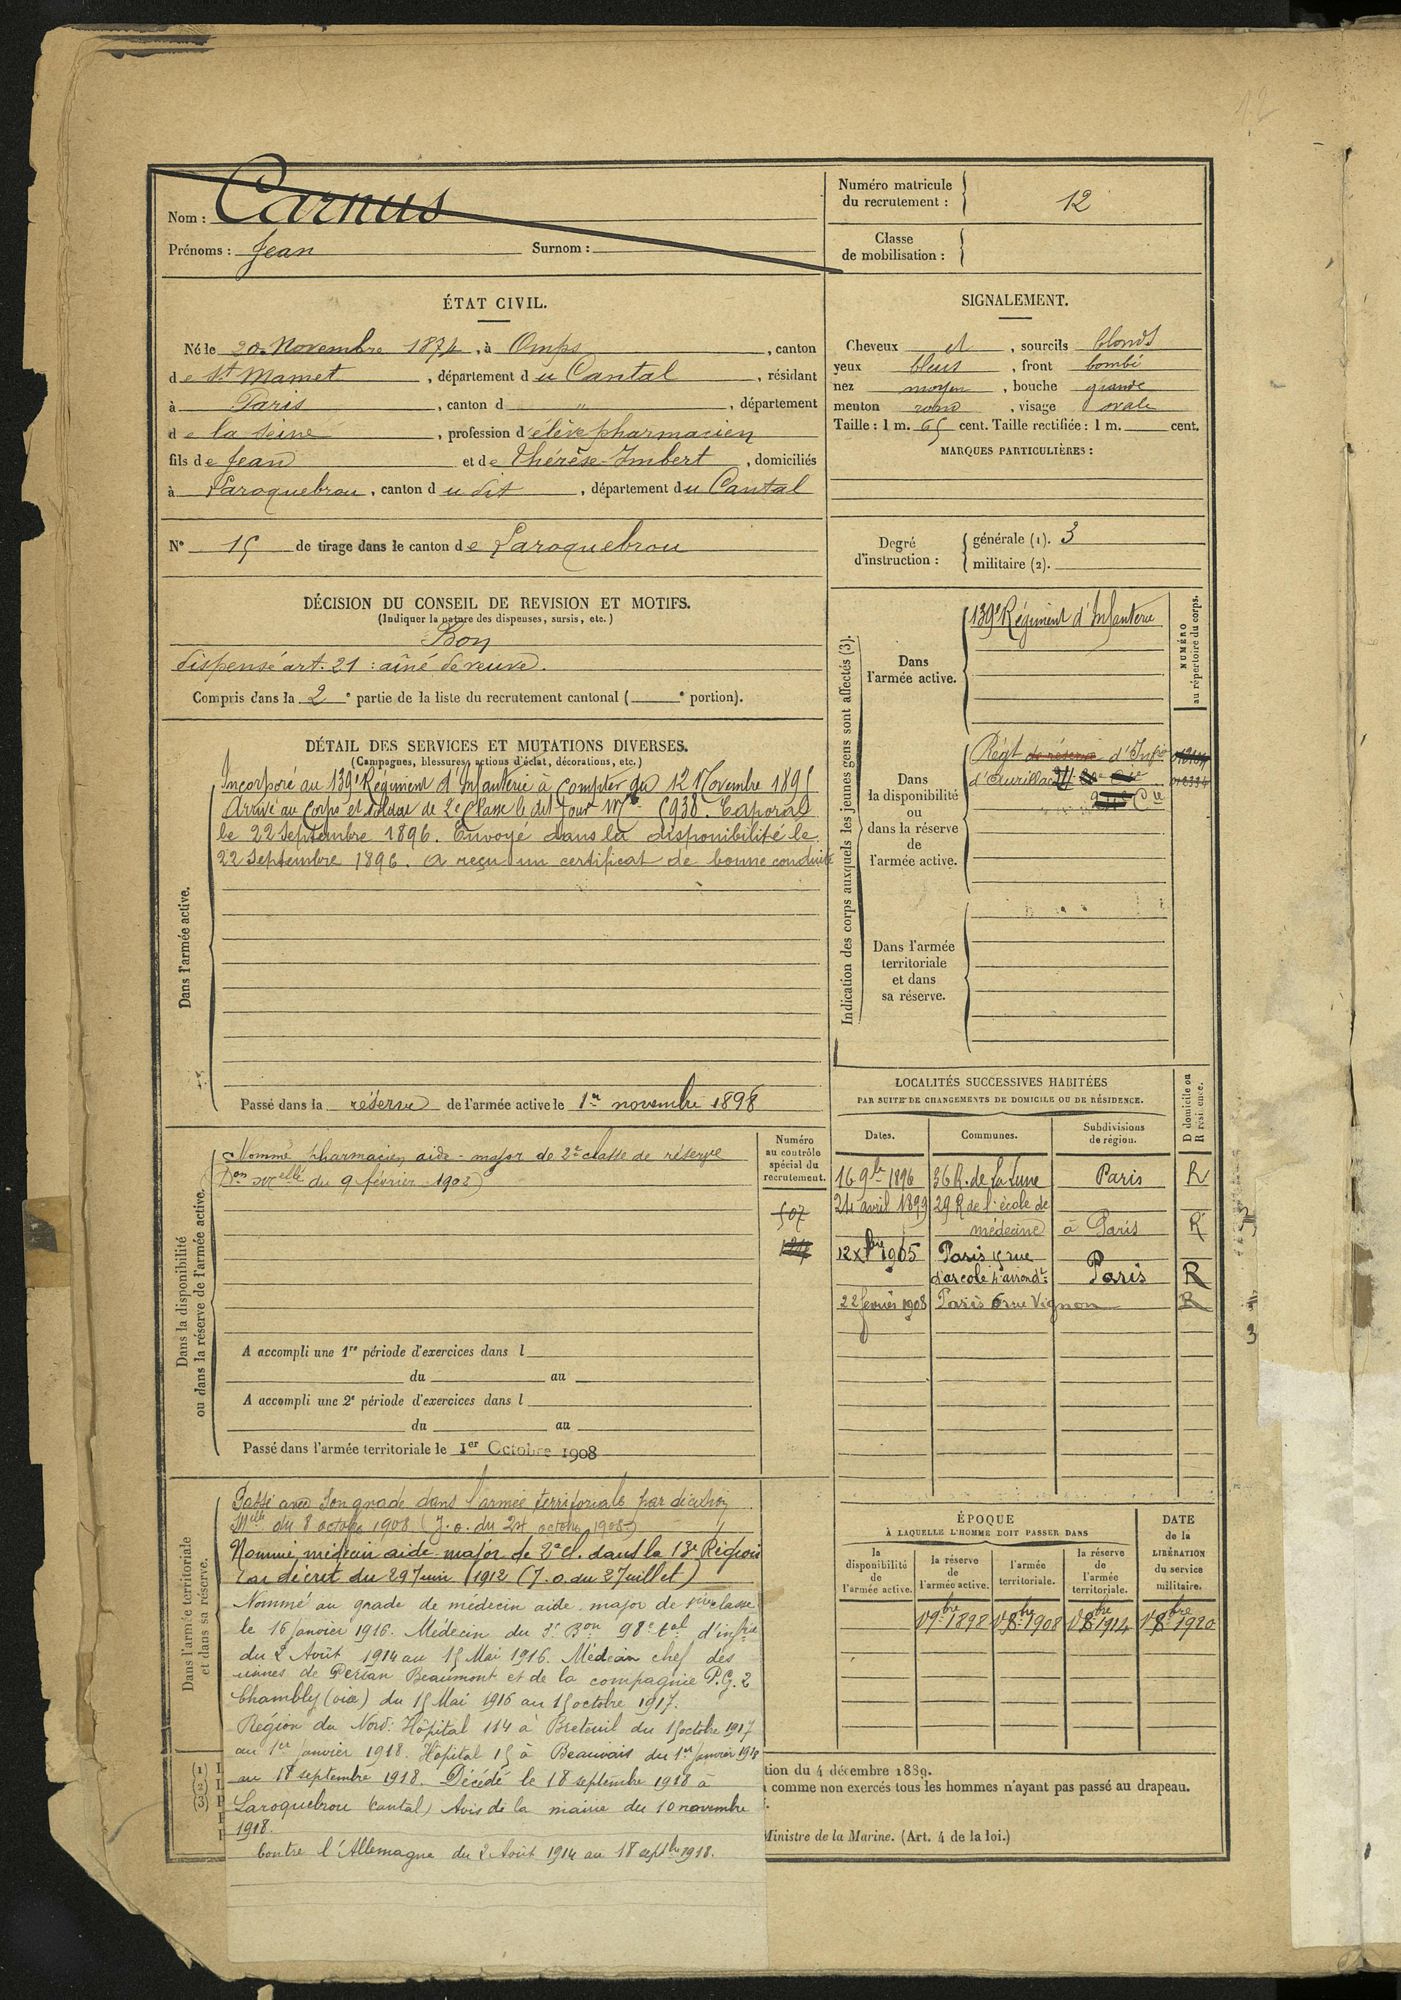 12
Nom : Carnus
Prénoms : Jean Surnom :
Numéro matricule du recrutement : 12
Classe de mobilisation :
ÉTAT CIVIL.
Né le 20 Novembre 1874, à Omps, canton
de St Mamet, département du Cantal, résidant
à Paris, canton d ", département
de la Seine, profession d'élève pharmacien
fils de Jean et de Thérèse Imbert, domiciliés
à Laroquebrou, canton du dit, département du Cantal
N° 15 de tirage dans le canton de Laroquebrou
SIGNALEMENT.
Cheveux et, sourcils blonds
yeux bleus, front bombé
nez moyen, bouche grande
menton rond, visage ovale
Taille : 1 m. 65 cent. Taille rectifiée : 1 m. cent.
MARQUES PARTICULIÈRES :
Degré d'instruction :
générale (1). 3
militaire (2).
DÉCISION DU CONSEIL DE REVISION ET MOTIFS.
(Indiquer la nature des dispenses, sursis, etc.)
Bon
dispensé art. 21 : aîné de veuve.
Compris dans la 2e partie de la liste du recrutement cantonal ( e portion).
DÉTAIL DES SERVICES ET MUTATIONS DIVERSES.
(Campagnes, blessures, actions d'éclat, décorations, etc.)
Dans l'armée active.
Incorporé au 139e Régiment d'Infanterie à compter du 12 Novembre 1895
Arrivé au Corps et soldat de 2e Classe le dit jour Mle 5938. Caporal
le 22 Septembre 1896. Envoyé dans la disponibilité le
22 Septembre 1896. A reçu un certificat de bonne conduite
Passé dans la réserve de l'armée active le 1er novembre 1898
Indication des corps auxquels les jeunes gens sont affectés (3).
NUMÉRO au répertoire du corps.
Dans l'armée active.
139e Régiment d'Infanterie
Dans la disponibilité ou dans la réserve de l'armée active.
Régt de réserve d'Infie
d'Aurillac
Cie
Dans l'armée territoriale et dans sa réserve.
Dans la disponibilité ou dans la réserve de l'armée active.
Nommé pharmacien aide-major de 2e classe de réserve
Don melle du 9 février 1903
Numéro au contrôle spécial du recrutement.
507
A accompli une 1re période d'exercices dans l
du au
A accompli une 2e période d'exercices dans l
du au
Passé dans l'armée territoriale le 1er Octobre 1908
LOCALITÉS SUCCESSIVES HABITÉES
PAR SUITE DE CHANGEMENTS DE DOMICILE OU DE RÉSIDENCE.
Dates. Communes. Subdivisions de région. D domicile ou R résidence.
16 9bre 1896 36 R. de la Lune Paris R
24 avril 1899 29 R de l'école de
médecine à Paris R
12 Xbre 1905 Paris 5 rue
d'arcole 4e arrondt Paris R
22 février 1908 Paris 6 rue Vignon R
Dans l'armée territoriale et dans sa réserve.
Passé avec son grade dans l'armée territoriale par décision
Mlle du 8 octobre 1908 (J. o. du 24 octobre 1908)
Nommé médecin aide-major de 2e cl. dans la 13e Région
Par décret du 29 Juin 1912 (J. o. du 2 Juillet)
Nommé au grade de médecin aide-major de 1ère classe
le 16 janvier 1916. Médecin du 3e Bon 98e tal d'infie
du 2 Août 1914 au 15 Mai 1916. Médecin chef des
usines de Persan Beaumont et de la compagnie P.G. 2
Chambly (oise) du 15 Mai 1916 au 15 octobre 1917.
Région du Nord : Hôpital 114 à Breteuil du 15 octobre 1917
au 1er janvier 1918. Hôpital 15 à Beauvais du 1er janvier 1918
au 18 septembre 1918. Décédé le 18 septembre 1918 à
Laroquebrou (cantal) Avis de la mairie du 10 novembre
1918.
Contre l'Allemagne du 2 Août 1914 au 18 septbre 1918.
ÉPOQUE
À LAQUELLE L'HOMME DOIT PASSER DANS
la disponibilité de l'armée active. la réserve de l'armée active. l'armée territoriale. la réserve de l'armée territoriale.
DATE de la LIBÉRATION du service militaire.
1 9bre 1898 1 8bre 1908 1 8bre 1914 1 8bre 1920
(1)
(2)
(3)
tion du 4 décembre 1889.
comme non exercés tous les hommes n'ayant pas passé au drapeau.
Ministre de la Marine. (Art. 4 de la loi.)
3